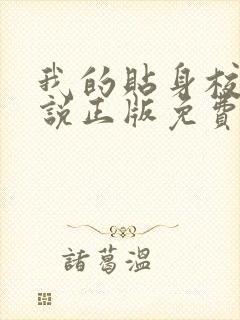 我的貼身校
說正版免費
諸葛溫